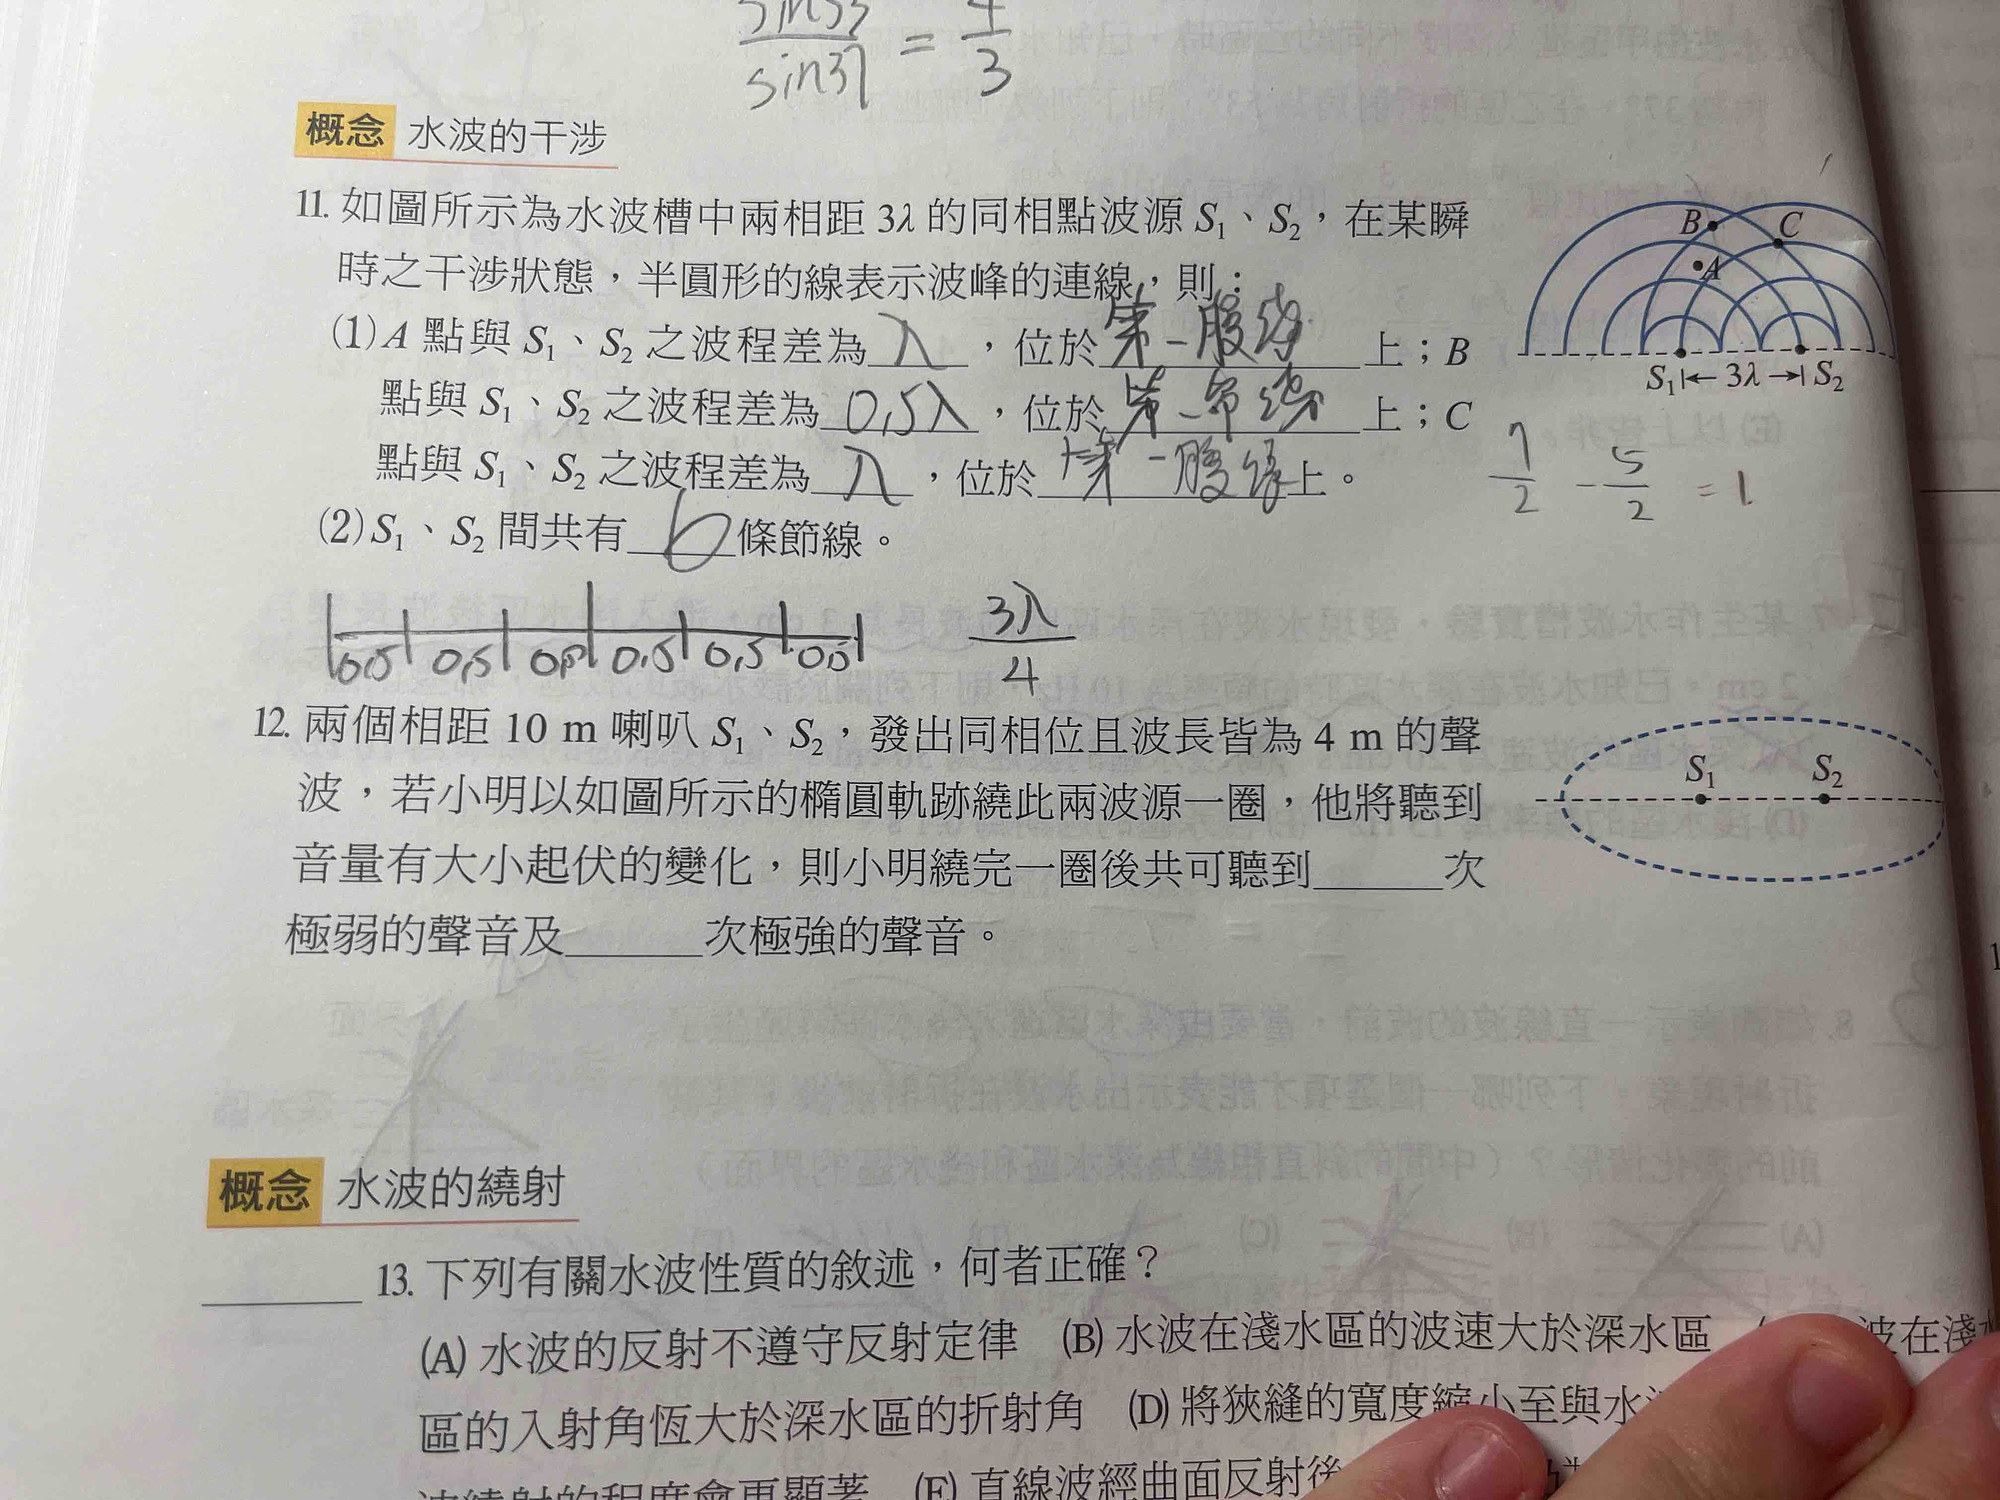 sin53
sin37
=
4
3
概念 水波的干涉
11. 如圖所示為水波槽中兩相距 3λ 的同相點波源 S₁、S₂，在某瞬
時之干涉狀態，半圓形的線表示波峰的連線，則：
(1) A 點與 S₁、S₂ 之波程差為 λ ，位於 第一腹線 上；B
點與 S₁、S₂ 之波程差為 0.5λ ，位於 第一節線 上；C
點與 S₁、S₂ 之波程差為 λ ，位於 第一腹線 上。
(2) S₁、S₂ 間共有 6 條節線。
B
C
A
S₁ 3λ S₂
7/2 - 5/2 = 1
0.5 0.5 0.5 0.5 0.5 0.5
3λ
4
12. 兩個相距 10 m 喇叭 S₁、S₂，發出同相位且波長皆為 4 m 的聲
波，若小明以如圖所示的橢圓軌跡繞此兩波源一圈，他將聽到
音量有大小起伏的變化，則小明繞完一圈後共可聽到______次
極弱的聲音及______次極強的聲音。
S₁ S₂
概念 水波的繞射
______ 13. 下列有關水波性質的敘述，何者正確？
(A) 水波的反射不遵守反射定律 (B) 水波在淺水區的波速大於深水區 波在淺
區的入射角恆大於深水區的折射角 (D) 將狹縫的寬度縮小至與水
波繞射的程度會更顯著 (E) 直線波經曲面反射後